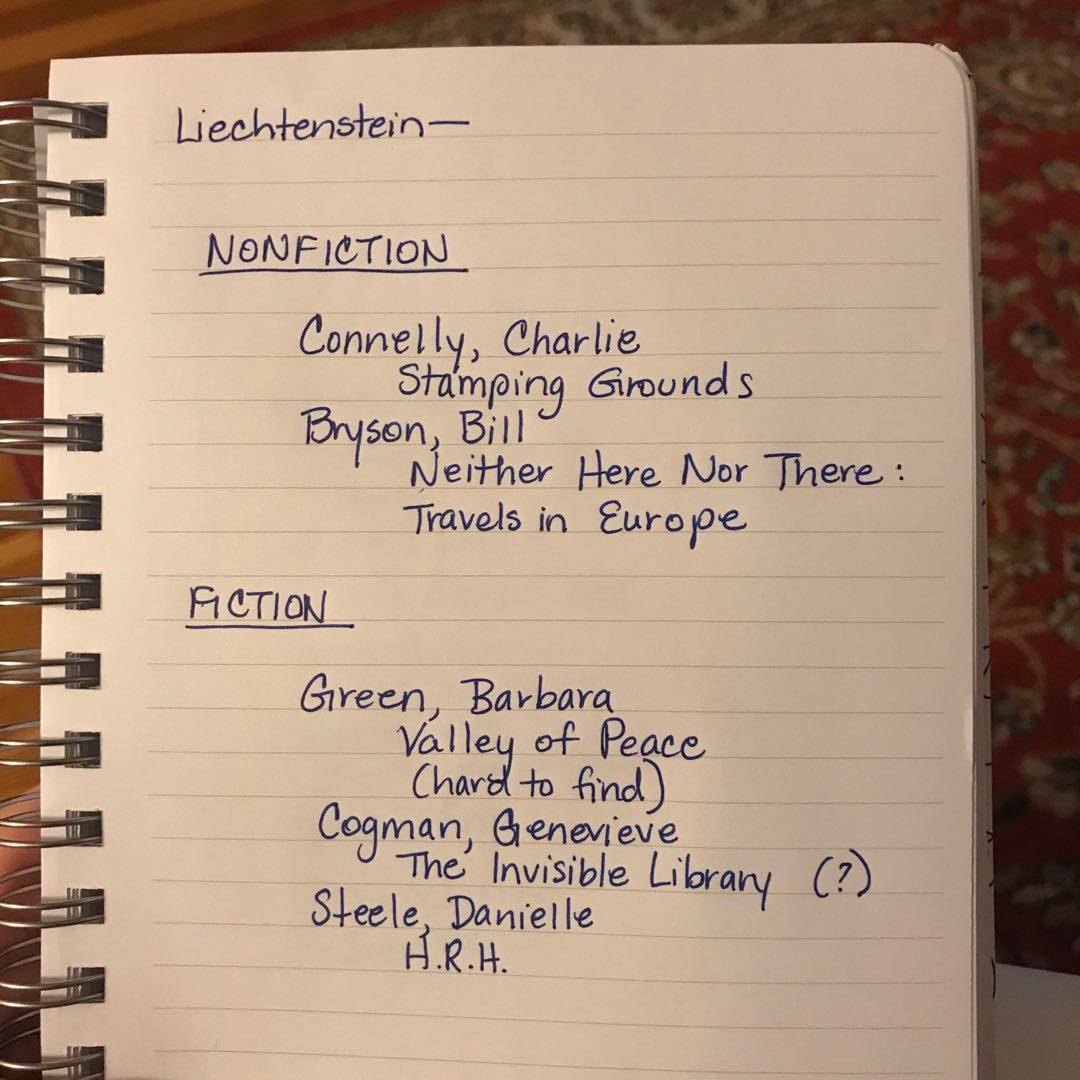 Liechtenstein—
NONFICTION
Connelly, Charlie
Stamping Grounds
Bryson, Bill
Neither Here Nor There:
Travels in Europe
FICTION
Green, Barbara
Valley of Peace
(hard to find)
Cogman, Genevieve
The Invisible Library (?)
Steele, Danielle
H.R.H.